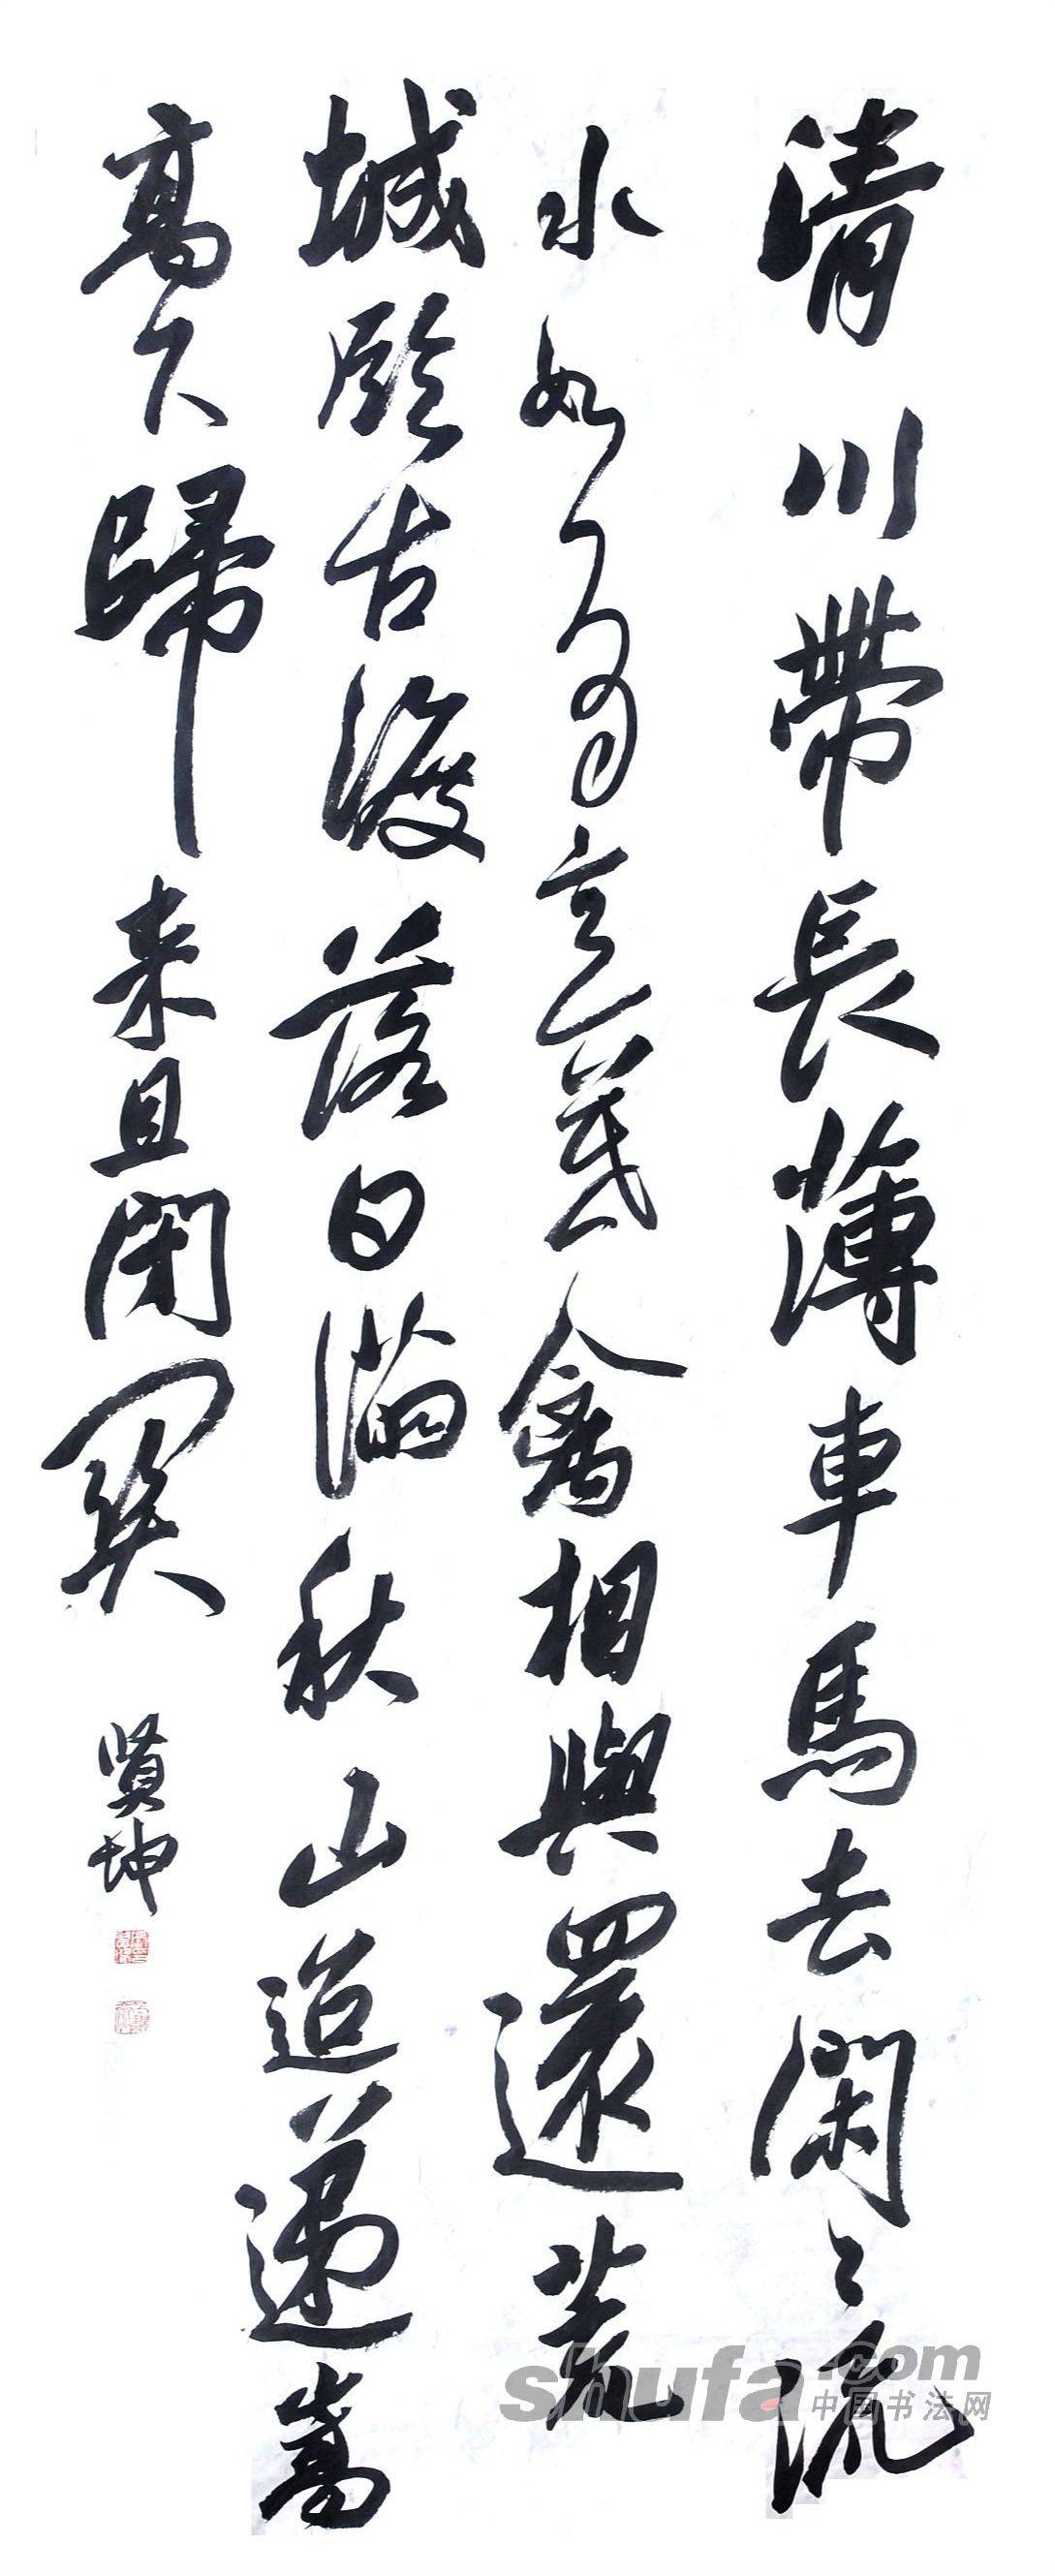 清川帶長薄車馬去閑〻流
水如有意暮禽相與還荒
城臨古渡落日滿秋山迢遞嵩
高下歸来且閉關
賢坤
shufa.com
中国书法网